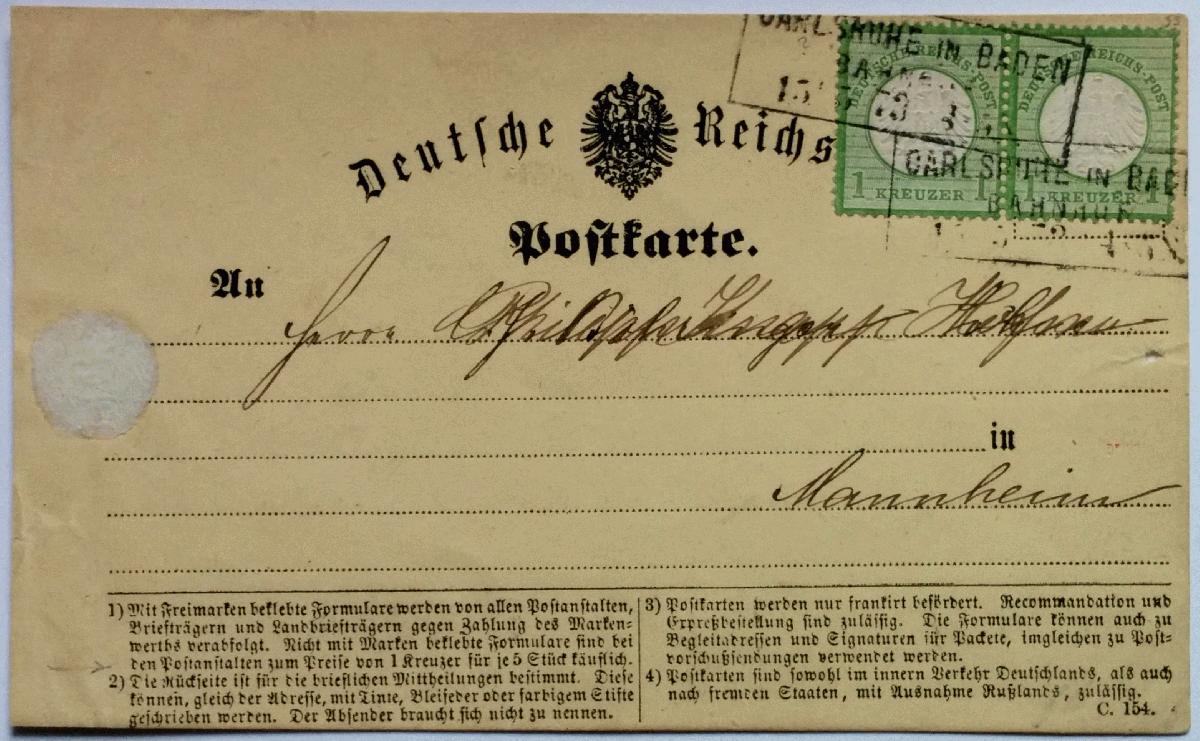 CARLSRUHE IN BADEN
BAHNHOF
DEUTSCHE REICHS-POST
1 KREUZER 1
DEUTSCHE REICHS-POST
1 KREUZER 1
CARLSRUHE IN BAD
BAHNHOF
Deutſche Reichs
Poſtkarte.
An
Herrn Philipp Knapp
in
Mannheim
1) Mit Freimarken beklebte Formulare werden von allen Poſtanſtalten,
Briefträgern und Landbriefträgern gegen Zahlung des Marken-
werths verabfolgt. Nicht mit Marken beklebte Formulare ſind bei
den Poſtanſtalten zum Preiſe von 1 Kreuzer für je 5 Stück käuflich.
2) Die Rückſeite iſt für die brieflichen Mittheilungen beſtimmt. Dieſe
können, gleich der Adreſſe, mit Tinte, Bleifeder oder farbigem Stifte
geſchrieben werden. Der Abſender braucht ſich nicht zu nennen.
3) Poſtkarten werden nur frankirt befördert. Recommandation und
Expreßbeſtellung ſind zuläſſig. Die Formulare können auch zu
Begleitadreſſen und Signaturen für Packete, imgleichen zu Poſt-
vorſchußſendungen verwendet werden.
4) Poſtkarten ſind ſowohl im innern Verkehr Deutſchlands, als auch
nach fremden Staaten, mit Ausnahme Rußlands, zuläſſig.
C. 154.